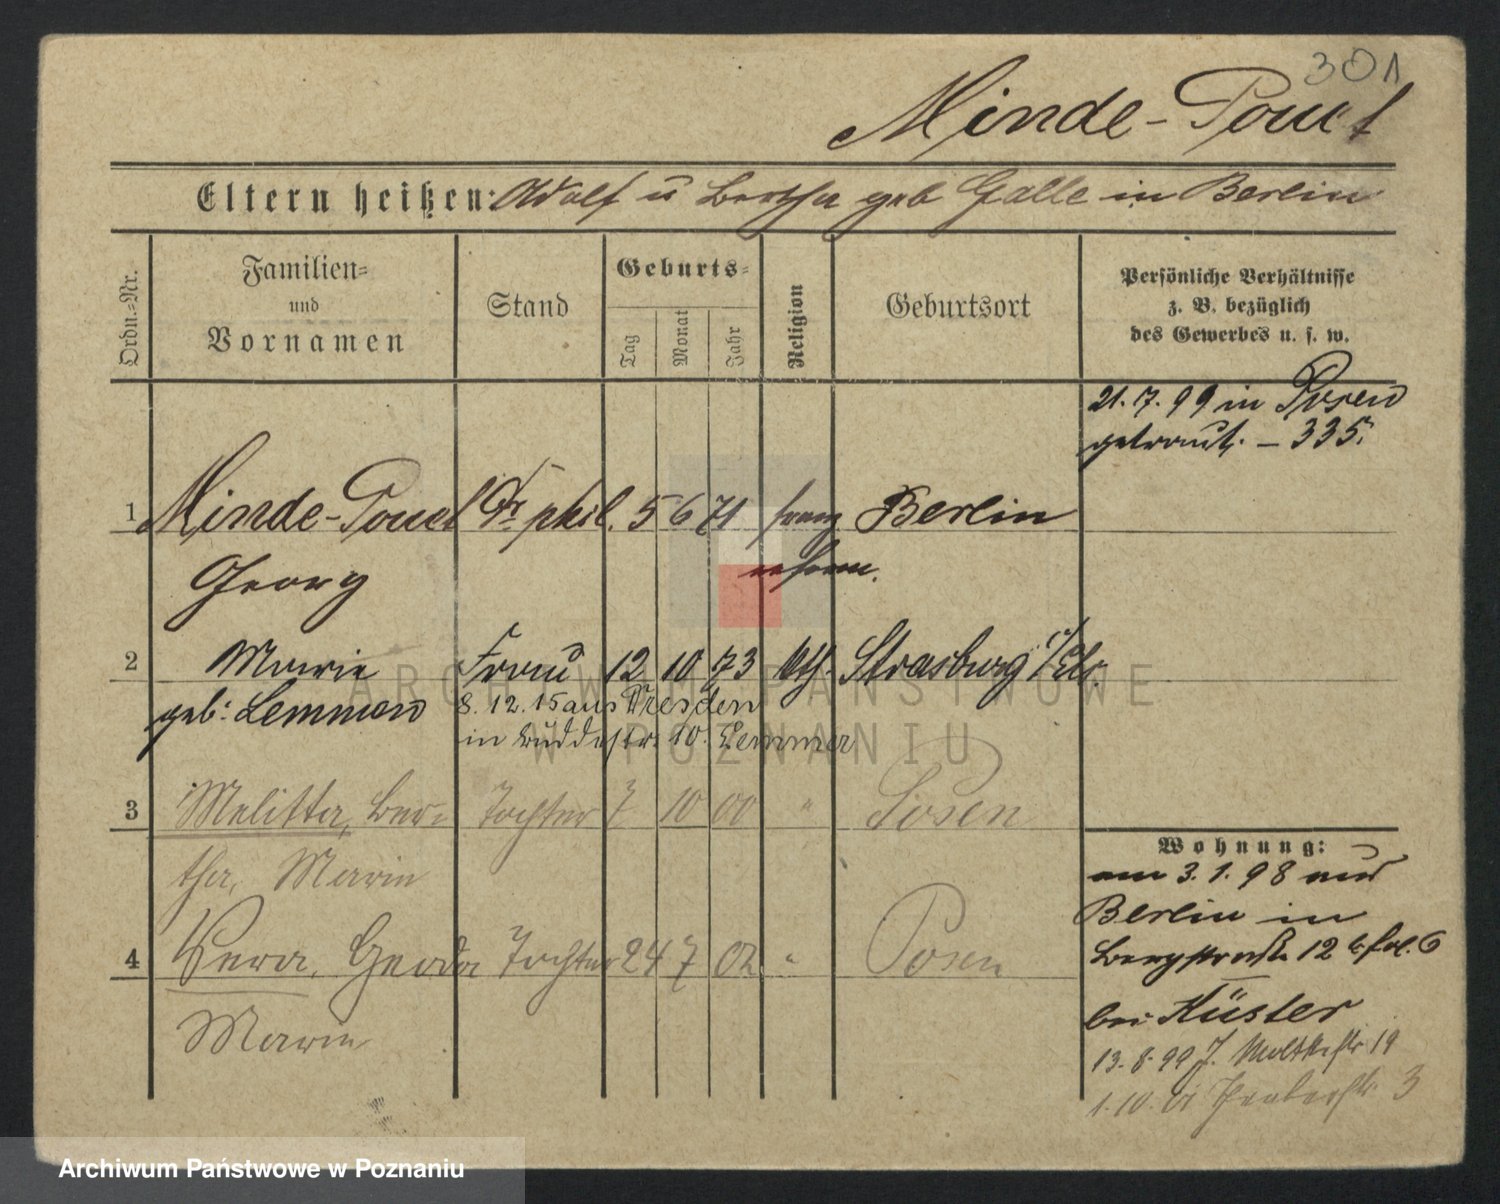 301
Minde-Pouet
Eltern heißen: Adolf u Bertha geb Galle in Berlin
Ordn.-Nr.
Familien-
und
Vornamen
Stand
Geburts-
Tag
Monat
Jahr
Religion
Geburtsort
Persönliche Verhältnisse
z. B. bezüglich
des Gewerbes u. s. w.
21. 7. 99 in Posen
getraut. – 335.
1 Minde-Pouet Dr phil. 5 6 71 franz Berlin
Georg reform.
2 Marie Frau 12 10 73 kth. Strasburg i/Els.
geb: Lemmen 8. 12. 15 aus Dresden
in 10. Lemmer
3 Melitta, Ber- Tochter 7 10 00 " Posen
tha, Marie
4 Vera, Gerda Tochter 24 7 02 " Posen
Marie
Wohnung:
am 3. 1. 98 aus
Berlin in
Bergstraße 12 b
bei Küster
13. 8. 99 J. Moltkestr 19
1. 10. 01 3
ARCHIWUM PAŃSTWOWE
W POZNANIU
Archiwum Państwowe w Poznaniu